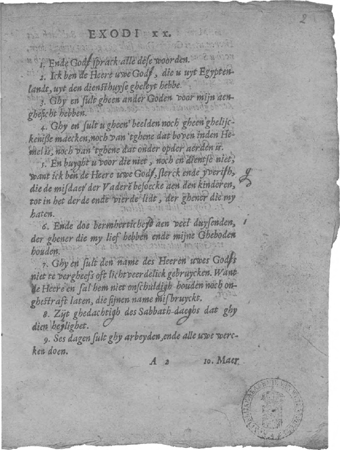 2
EXODI XX.
1. Ende Godt sprack alle dese woorden.
2. Ick ben de Heere uwe Godt, die u uyt Egypten-
landt, uyt den diensthuyse ghesleyt hebbe.
3. Ghy en sult gheen ander Goden voor mijn aen-
ghesicht hebben.
4. Ghy en sult u gheen beelden noch gheen ghelijck-
kenisse maecken, noch van 'tghene dat boven inden He-
mel is, noch van 'tghene dat onder op der aerden is.
5. En buyght u voor die niet, noch en dientse niet,
want ick ben de Heere uwe Godt, sterck ende yverish,
die de misdaet der Vaders besoecke aen den kinderen,
tot in het derde ende vierde lidt, der ghener die my
haten.
6. Ende doe bermherticheyt aen veel duysenden,
der ghener die my lief hebben ende mijne Gheboden
houden.
7. Ghy en sult den name des Heeren uwes Godts
niet te vergheefs oft lichtveerdelick gebruycken. Want
de Heere en sal hem niet onschuldigh houden noch on-
ghestraft laten, die sijnen name misbruyckt.
8. Zijt ghedachtigh des Sabbath-daeghs dat ghy
dien heylighet.
9. Ses dagen sult ghy arbeyden, ende alle uwe werc-
ken doen.
A 2 10. Maer